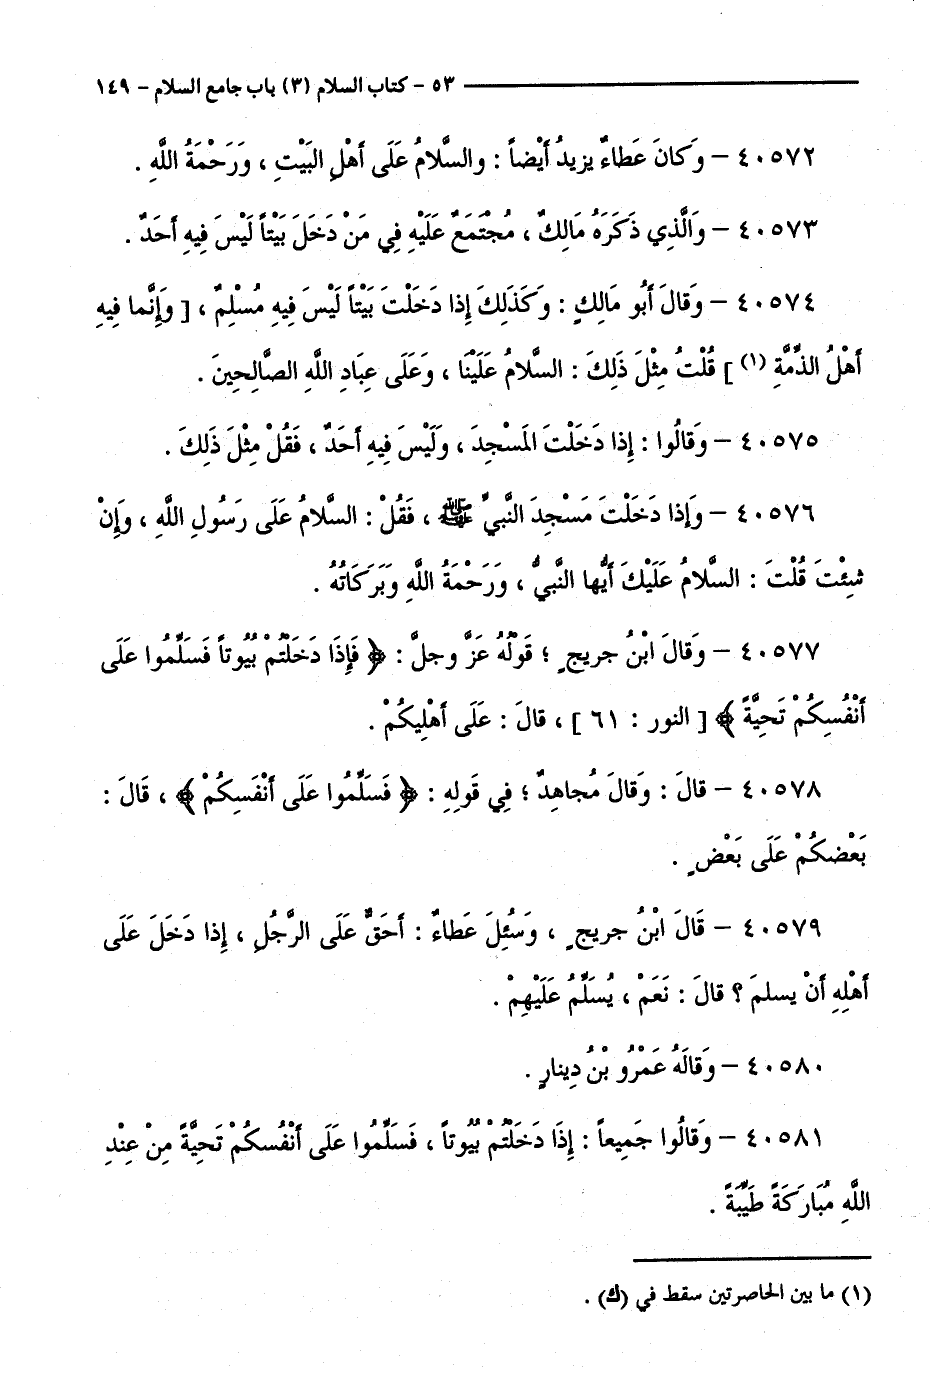 ٥٣ - كتاب السلام (٣) باب جامع السلام - ١٤٩
٤٠٥٧٢ - وَكانَ عَطاءٌ يزيدُ أيْضاً : والسَّلامُ عَلَى أهْلِ البَيْتِ ، وَرَحْمَةُ اللَّهِ .
٤٠٥٧٣ - وَالَّذِي ذَكَرَهُ مَالِكٌ ، مُجْتَمَعٌ عَلَيْهِ فِي مَنْ دَخَلَ بَيْتاً لَيْسَ فِيهِ أحَدٌ .
٤٠٥٧٤ - وَقالَ أبُو مَالِكٍ : وَكَذَلِكَ إذا دَخَلْتَ بَيْتاً لَيْسَ فِيهِ مُسْلِمٌ ، [ وَإنَّما فِيهِ
أهْلُ الذِّمَّةِ (١) ] قُلْتُ مِثْلَ ذَلِكَ : السَّلامُ عَلَيْنَا ، وَعَلَى عِبَادِ اللَّهِ الصَّالِحِينَ .
٤٠٥٧٥ - وَقَالُوا : إذا دَخَلْتَ المَسْجِدَ ، وَلَيْسَ فِيهِ أحَدٌ ، فَقُلْ مِثْلَ ذَلِكَ .
٤٠٥٧٦ - وَإذا دَخَلْتَ مَسْجِدَ النَّبيِّ ﷺ ، فَقُلْ : السَّلامُ عَلَى رَسُولِ اللَّهِ ، وَإنْ
شِئْتَ قُلْتَ : السَّلامُ عَلَيْكَ أيُّها النَّبيُّ ، وَرَحْمَةُ اللَّهِ وَبَرَكَاتُهُ .
٤٠٥٧٧ - وَقَالَ ابْنُ جريجٍ ؛ قَوْلُهُ عَزَّ وجلَّ : ﴿ فَإِذَا دَخَلْتُمْ بُيُوتاً فَسَلِّمُوا عَلَى
أَنْفُسِكُمْ تَحِيَّةً ﴾ [ النور : ٦١ ] ، قالَ : عَلَى أهْلِيكُمْ .
٤٠٥٧٨ - قالَ : وَقَالَ مُجاهِدٌ ؛ فِي قَولِهِ : ﴿ فَسَلِّمُوا عَلَى أَنْفَسِكُمْ ﴾ ، قَالَ :
بَعْضكُمْ عَلَى بَعْضٍ .
٤٠٥٧٩ - قَالَ ابْنُ جريجٍ ، وَسُئِلَ عَطاءٌ : أحَقٌّ عَلَى الرَّجُلِ ، إذا دَخَلَ عَلَى
أهْلِهِ أنْ يسلمَ ؟ قالَ : نَعَمْ ، يُسَلِّمُ عَلَيْهِمْ .
٤٠٥٨٠ - وَقَالَهُ عَمْرُو بْنُ دِينارٍ .
٤٠٥٨١ - وَقَالُوا جَمِيعاً : إِذَا دَخَلْتُمْ بُيُوتاً ، فَسَلِّمُوا عَلَى أنْفُسكُمْ تَحِيَّةً مِنْ عِنْدِ
اللَّهِ مُبَارَكَةً طَيِّبَةً .
(١) ما بين الحاصرتين سقط في (ك) .